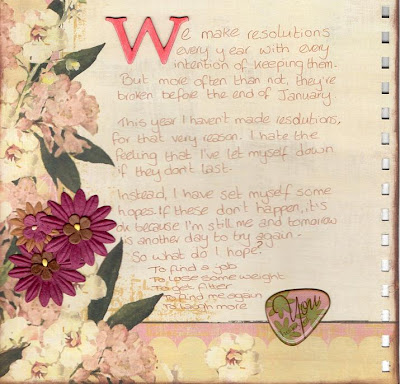 We make resolutions
every year with every
intention of keeping them.
But more often than not, they're
broken before the end of January.
This year I haven't made resolutions,
for that very reason. I hate the
feeling that I've let myself down
if they don't last.
Instead, I have set myself some
hopes. If these don't happen, it's
ok because I'm still me and tomorrow
is another day to try again.
So what do I hope?
To find a job
To lose some weight
To get fitter
To find me again
To learn more
You